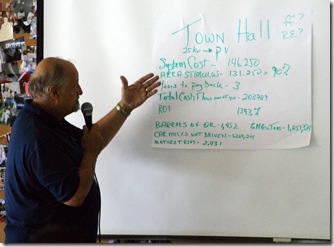 Town Hall
25kw → PV
System Cost - 146 250
ARRA STIMULUS - 131.250 = 90%
Years to pay Back - 3
Total Cash Flow
ROI 1393%
BARRELS OF OIL - 1,452
CAR MILES NOT DRIVEN -
MATURE TREES -